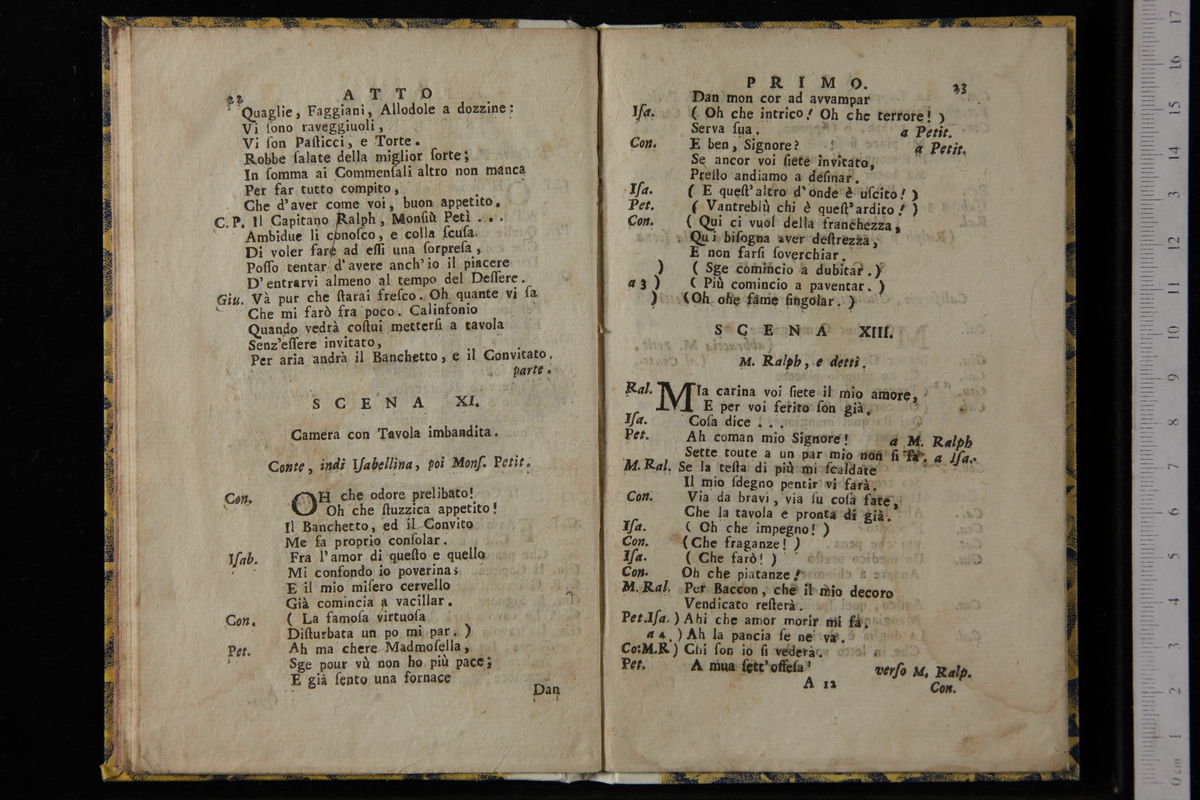 22 ATTO
Quaglie, Faggiani, Allodole a dozzine:
Vi ſono raveggiuoli,
Vi ſon Paſticci, e Torte.
Robbe ſalate della miglior ſorte;
In ſomma ai Commenſali altro non manca
Per far tutto compito,
Che d'aver come voi, buon appetito.
C. P. Il Capitano Ralph, Monſiù Petì . . .
Ambidue li conoſco, e colla ſcuſa
Di voler fare ad eſſi una ſorpreſa,
Poſſo tentar d'avere anch'io il piacere
D'entrarvi almeno al tempo del Deſſere.
Giu. Và pur che ſtarai freſco. Oh quante vi ſa
Che mi farò fra poco. Calinfonio
Quando vedrà coſtui metterſi a tavola
Senz'eſſere invitato,
Per aria andrà il Banchetto, e il Convitato.
parte.
SCENA XI.
Camera con Tavola imbandita.
Conte, indi Iſabellina, poi Monſ. Petit.
Con. OH che odore prelibato!
Oh che ſtuzzica appetito!
Il Banchetto, ed il Convito
Me fa proprio conſolar.
Iſab. Fra l'amor di queſto e quello
Mi confondo io poverina;
E il mio miſero cervello
Già comincia a vacillar.
Con. ( La famoſa virtuoſa
Diſturbata un po mi par. )
Pet. Ah ma chere Madmoſella,
Sge pour vù non ho più pace;
E già ſento una fornace
Dan
PRIMO. 23
Dan mon cor ad avvampar
Iſa. ( Oh che intrico! Oh che terrore! )
Serva ſua. a Petit.
Con. E ben, Signore? a Petit.
Se ancor voi ſiete invitato,
Preſto andiamo a deſinar.
Iſa. ( E queſt'altro d'onde è uſcito! )
Pet. ( Vantreblù chi è queſt'ardito! )
Con. ( Qui ci vuol della franchezza,
Qui biſogna aver deſtrezza,
E non farſi ſoverchiar.
) ( Sge comincio a dubitar. )
a 3 ) ( Più comincio a paventar. )
) (Oh ohe fame ſingolar. )
SCENA XIII.
M. Ralph, e detti.
Ral. MIa carina voi ſiete il mio amore,
E per voi ferito ſon già.
Iſa. Coſa dice . . .
Pet. Ah coman mio Signore! a M. Ralph
Sette toute a un par mio non ſi fa. a Iſa.
M. Ral. Se la teſta di più mi ſcaldate
Il mio ſdegno pentir vi farà.
Con. Via da bravi, via ſu coſa fate,
Che la tavola è pronta di già.
Iſa. ( Oh che impegno! )
Con. (Che fraganze! )
Iſa. ( Che farò! )
Con. Oh che piatanze!
M. Ral. Per Baccon, che il mio decoro
Vendicato reſterà.
Pet.Iſa. ) Ahi che amor morir mi fà.
a 4. ) Ah la pancia ſe ne và.
Co:M.R ) Chi ſon io ſi vederà.
Pet. A mua ſett'offeſa! verſo M. Ralp.
A 12 Con.